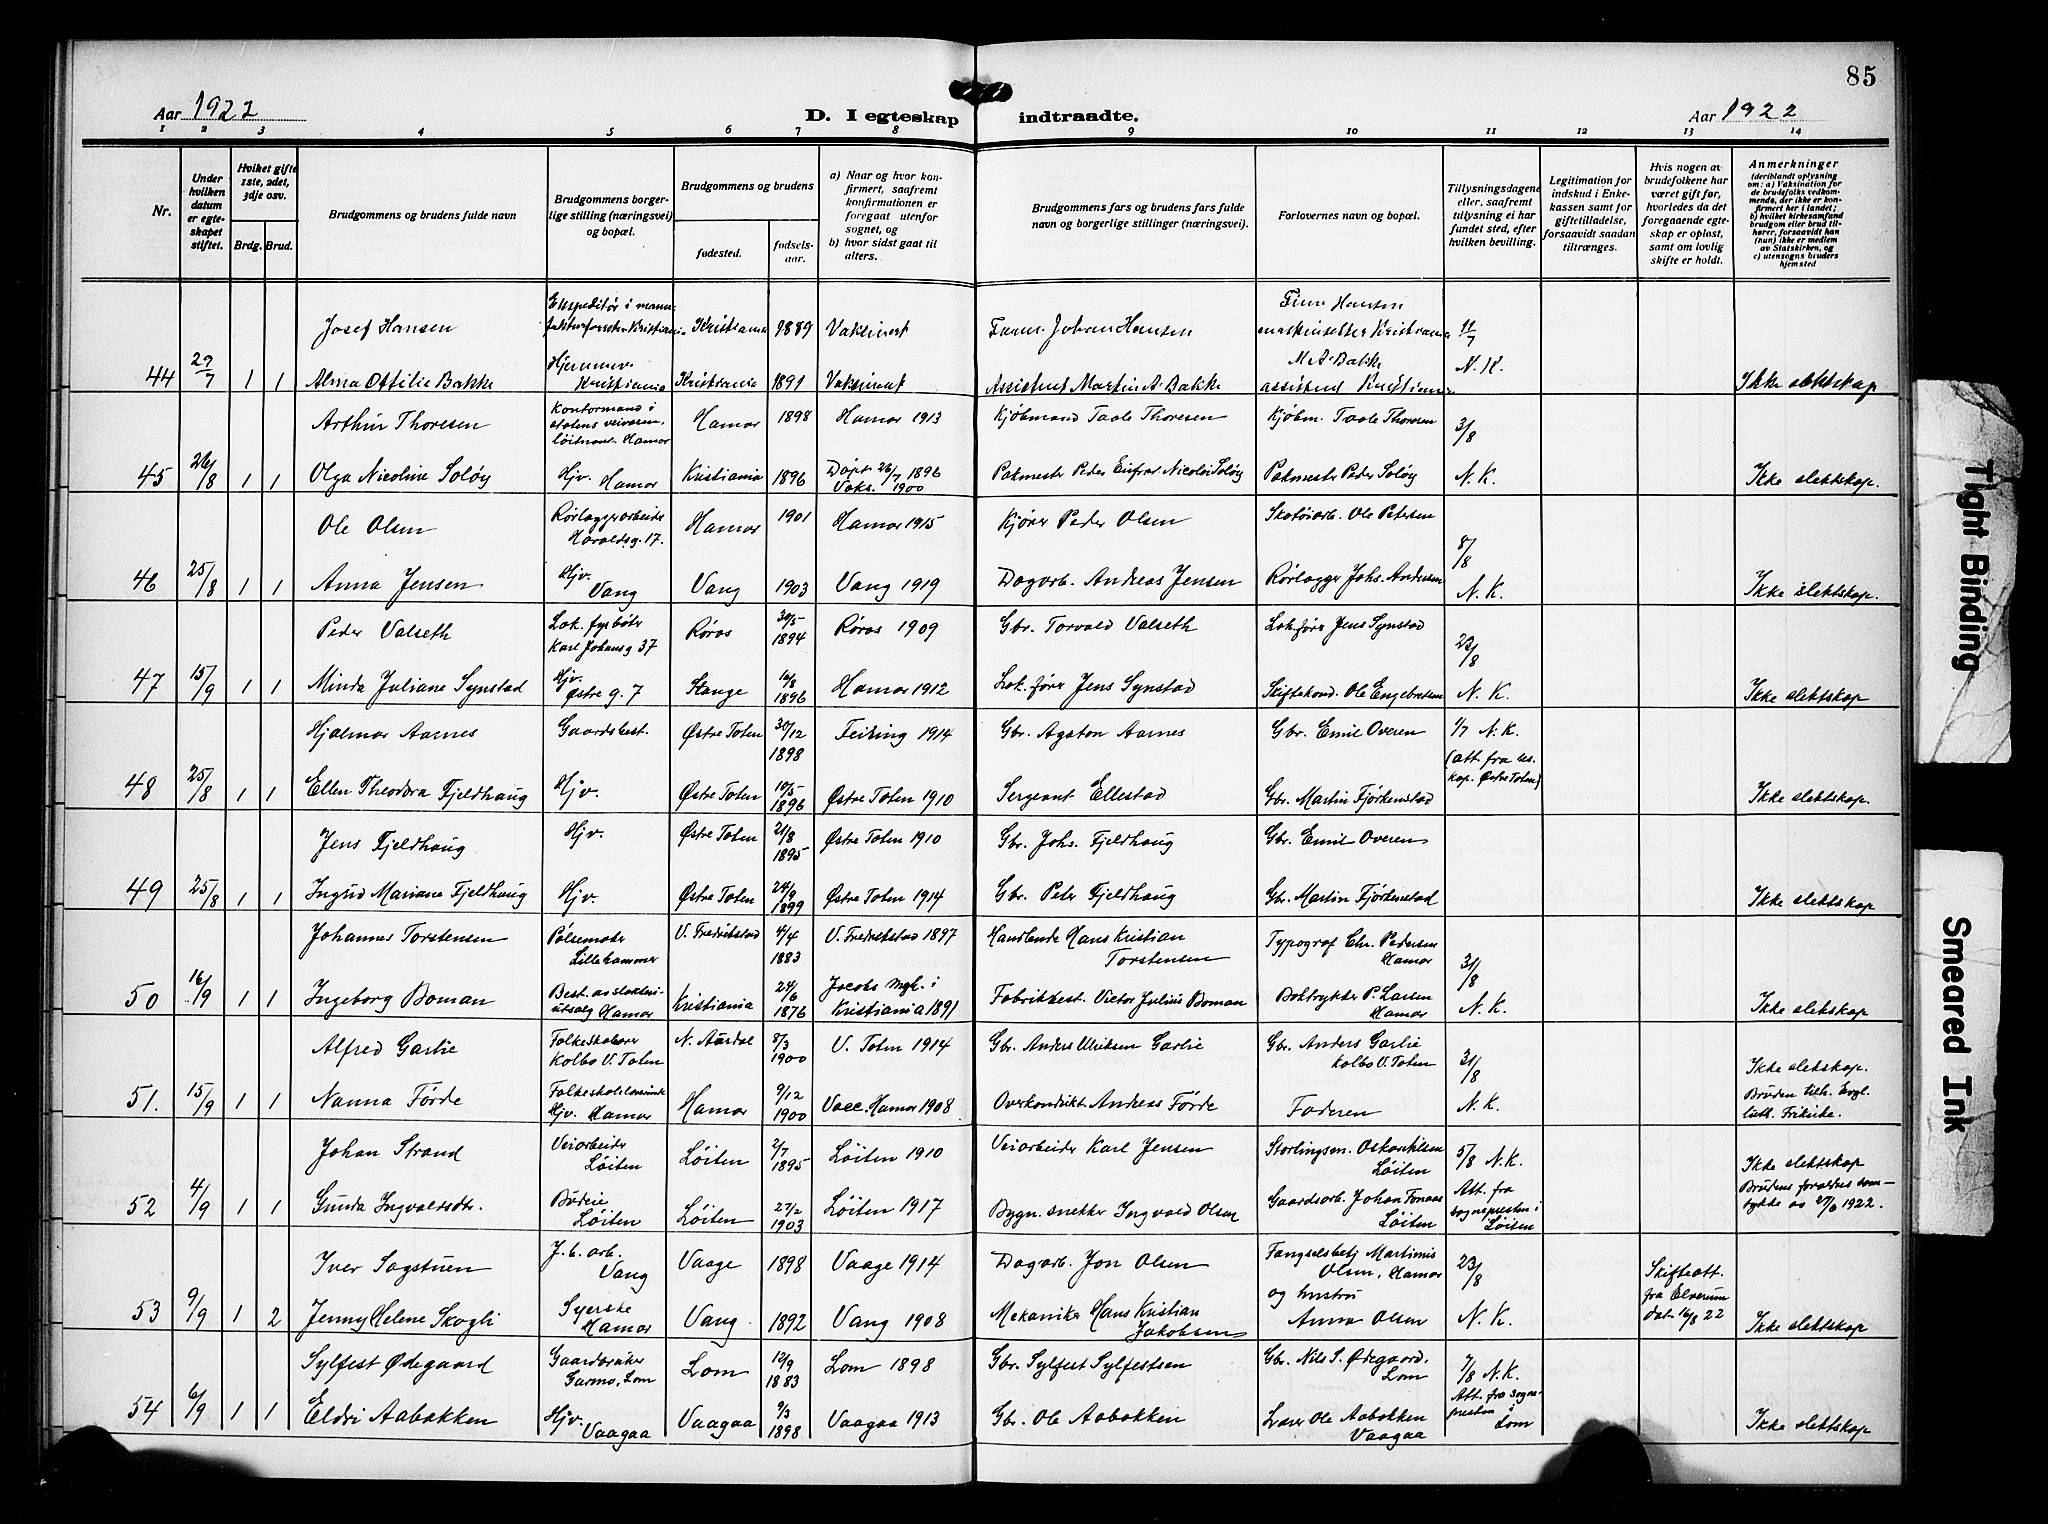 85
Aar 1922
D. I egteskap indtraadte.
Aar 1922
1 2 3 4 5 6 7 8 9 10 11 12 13 14
Nr.
Under hvilken datum er egteskapet stiftet.
Hvilket gifte 1ste, 2det, 3dje osv.
Brdg. Brud.
Brudgommens og brudens fulde navn
Brudgommens borgerlige stilling (næringsvei) og bopæl.
Brudgommens og brudens
fødested.
fødselsaar.
a) Naar og hvor konfirmert, saafremt konfirmationen er foregaat utenfor sognet, og
b) hvor sidst gaat til alters.
Brudgommens fars og brudens fars fulde navn og borgerlige stillinger (næringsvei).
Forlovernes navn og bopæl.
Tillysningsdagene eller, saafremt tillysning ei har fundet sted, efter hvilken bevilling.
Legitimation for indskud i Enkekassen samt for giftetilladelse, forsaavidt saadan tiltrænges.
Hvis nogen av brudefolkene har været gift før, hvorledes da det foregaaende egteskap er opløst, samt om lovlig skifte er holdt.
Anmerkninger (deriblandt oplysning om: a) Vaksination for de brudefolks vedkommende, der ikke er konfirmert her i landet; b) hvilket kirkesamfund brudgom eller brud tilhører, forsaavidt han (hun) ikke er medlem av Statskirken, og c) utensogns bruders hjemsted
Josef Hansen Kristiania Kristiania 1889 Vaksinert Johan Hansen Kristiania 11/7
44 29/7 1 1 Alma Ottilie Bakke Kristiania Kristiania 1891 Vaksinert Assistent Martin A. Bakke M. A. Bakke assistent Kristiania N. K. Ikke slektskap
Arthur Thoresen Kontormand i statens veivesen, løitnant. Hamar Hamar 1898 Hamar 1913 Kjøbmand Taale Thoresen Kjøbm. Taale Thoresen 3/8
45 26/8 1 1 Olga Nicoline Soløy Hjv. Hamar Kristiania 1896 Døpt 26/7 1896 Vaks. 1900 Pakmester Peder Nicolai Soløy Pakmester Peder Soløy N. K. Ikke slektskap.
Ole Olsen Rørlæggerarbeider Haraldsg. 17. Hamar 1901 Hamar 1915 Kjører Peder Olsen Skotøiarb. Ole Petersen 8/8
46 25/8 1 1 Anna Jensen Hjv. Vang Vang 1903 Vang 1919 Dagarb. Andreas Jensen Rørlægger Johs. Andersen N. K. Ikke slektskap.
Peder Valseth Lok. fyrbøter Karl Johansg 37 Røros 30/5 1894 Røros 1909 Gbr. Torvald Valseth Lok. fører Jens Synstad 22/8
47 15/9 1 1 Minda Juliane Synstad Hjv. Østre g. 7 Stange 16/8 1896 Hamar 1912 Lok. fører Jens Synstad Skiftekond. Ole Engebretsen N. K. Ikke slektskap
Hjalmar Aarnes Gaardsbest. Østre Toten 30/12 1898 Feiring 1914 Gbr. Agaton Aarnes Gbr. Emil Overen 1/7 N. K.
(att. fra res. kap. Østre Toten)
48 25/8 1 1 Ellen Theodora Fjeldhaug Hjv. Østre Toten 10/5 1896 Østre Toten 1910 Sergeant Ellestad Gbr. Martin Fjørkenstad Ikke slektskap.
Jens Fjeldhaug Hjv. Østre Toten 21/8 1895 Østre Toten 1910 Gbr. Johs. Fjeldhaug Gbr. Emil Overen
49 25/8 1 1 Ingrid Mariane Fjeldhaug Hjv. Østre Toten 24/9 1899 Østre Toten 1914 Gbr. Peter Fjeldhaug Gbr. Martin Fjørkenstad Ikke slektskap
Johannes Torstensen Pølsemaker Lillehammer V. Fredrikstad 4/4 1883 V. Fredrikstad 1897 Handlende Hans Kristian Torstensen Typograf Chr. Pedersen Hamar 31/8
50 16/9 1 1 Ingeborg Boman Best. av slakteriutsalg Hamar Kristiania 24/6 1876 Jacobs mgh. i Kristiania 1891 Fabrikbest. Victor Julius Boman Boktrykker P. Larsen Hamar N. K. Ikke slektskap
Alfred Garlie Folkeskolelærer Kolbo V. Toten N. Aurdal 8/3 1900 V. Toten 1914 Gbr. Anders Ulriksen Garlie Gbr. Anders Garlie Kolbo V. Toten 31/8
51. 15/9 1 1 Nanna Förde Folkeskolelærerinde Hjv. Hamar Hamar 9/12 1900 Vacc. Hamar 1908 Overkondukt. Andreas Förde Faderen N. K. Ikke slektskap. Bruden tilh. Evgl. luth. Frikirke.
Johan Strand Veiarbeider Løiten Løiten 2/7 1895 Løiten 1910 Veiarbeider Karl Jensen Storlingsm. Oskar Nilsen Løiten 5/8 N. K.
52 4/9 1 1 Gunda Ingvaldsdtr. Budeie Løiten Løiten 27/2 1903 Løiten 1917 Bygn. snekker Ingvald Olsen Gaardsarb. Johan Tomas Løiten Att. fra sognepresten i Løiten Ikke slektskap Brudens forældres samtykke av 27/6 1922.
Iver Sagstuen J. b. arb. Vang Vaage 1898 Vaage 1914 Dagarb. Jon Olsen Fængselsbetj Martinius Olsen, Hamar 23/8
53 9/9 1 2 Jenny Helene Skogli Syerske Hamar Vang 1892 Vang 1908 Mekaniker Hans Kristian Jakobsen og hustru Anna Olsen N. K. Skifteatt. fra Elverum dat. 16/8 22 Ikke slektskap
Sylfest Ødegaard Gaardbruker Garmo, Lom Lom 12/9 1883 Lom 1898 Gbr. Sylfest Sylfestsen Gbr. Nils S. Ødegaard, Lom 7/8 N. K.
54 6/9 1 1 Eldri Aabakken Hjv. Vaagaa Vaagaa 9/3 1898 Vaagaa 1913 Gbr. Ole Aabakken Lærer Ole Aabakken Vaagaa Att. fra sognepresten i Lom Ikke slektskap
Tight Binding
Smeared Ink